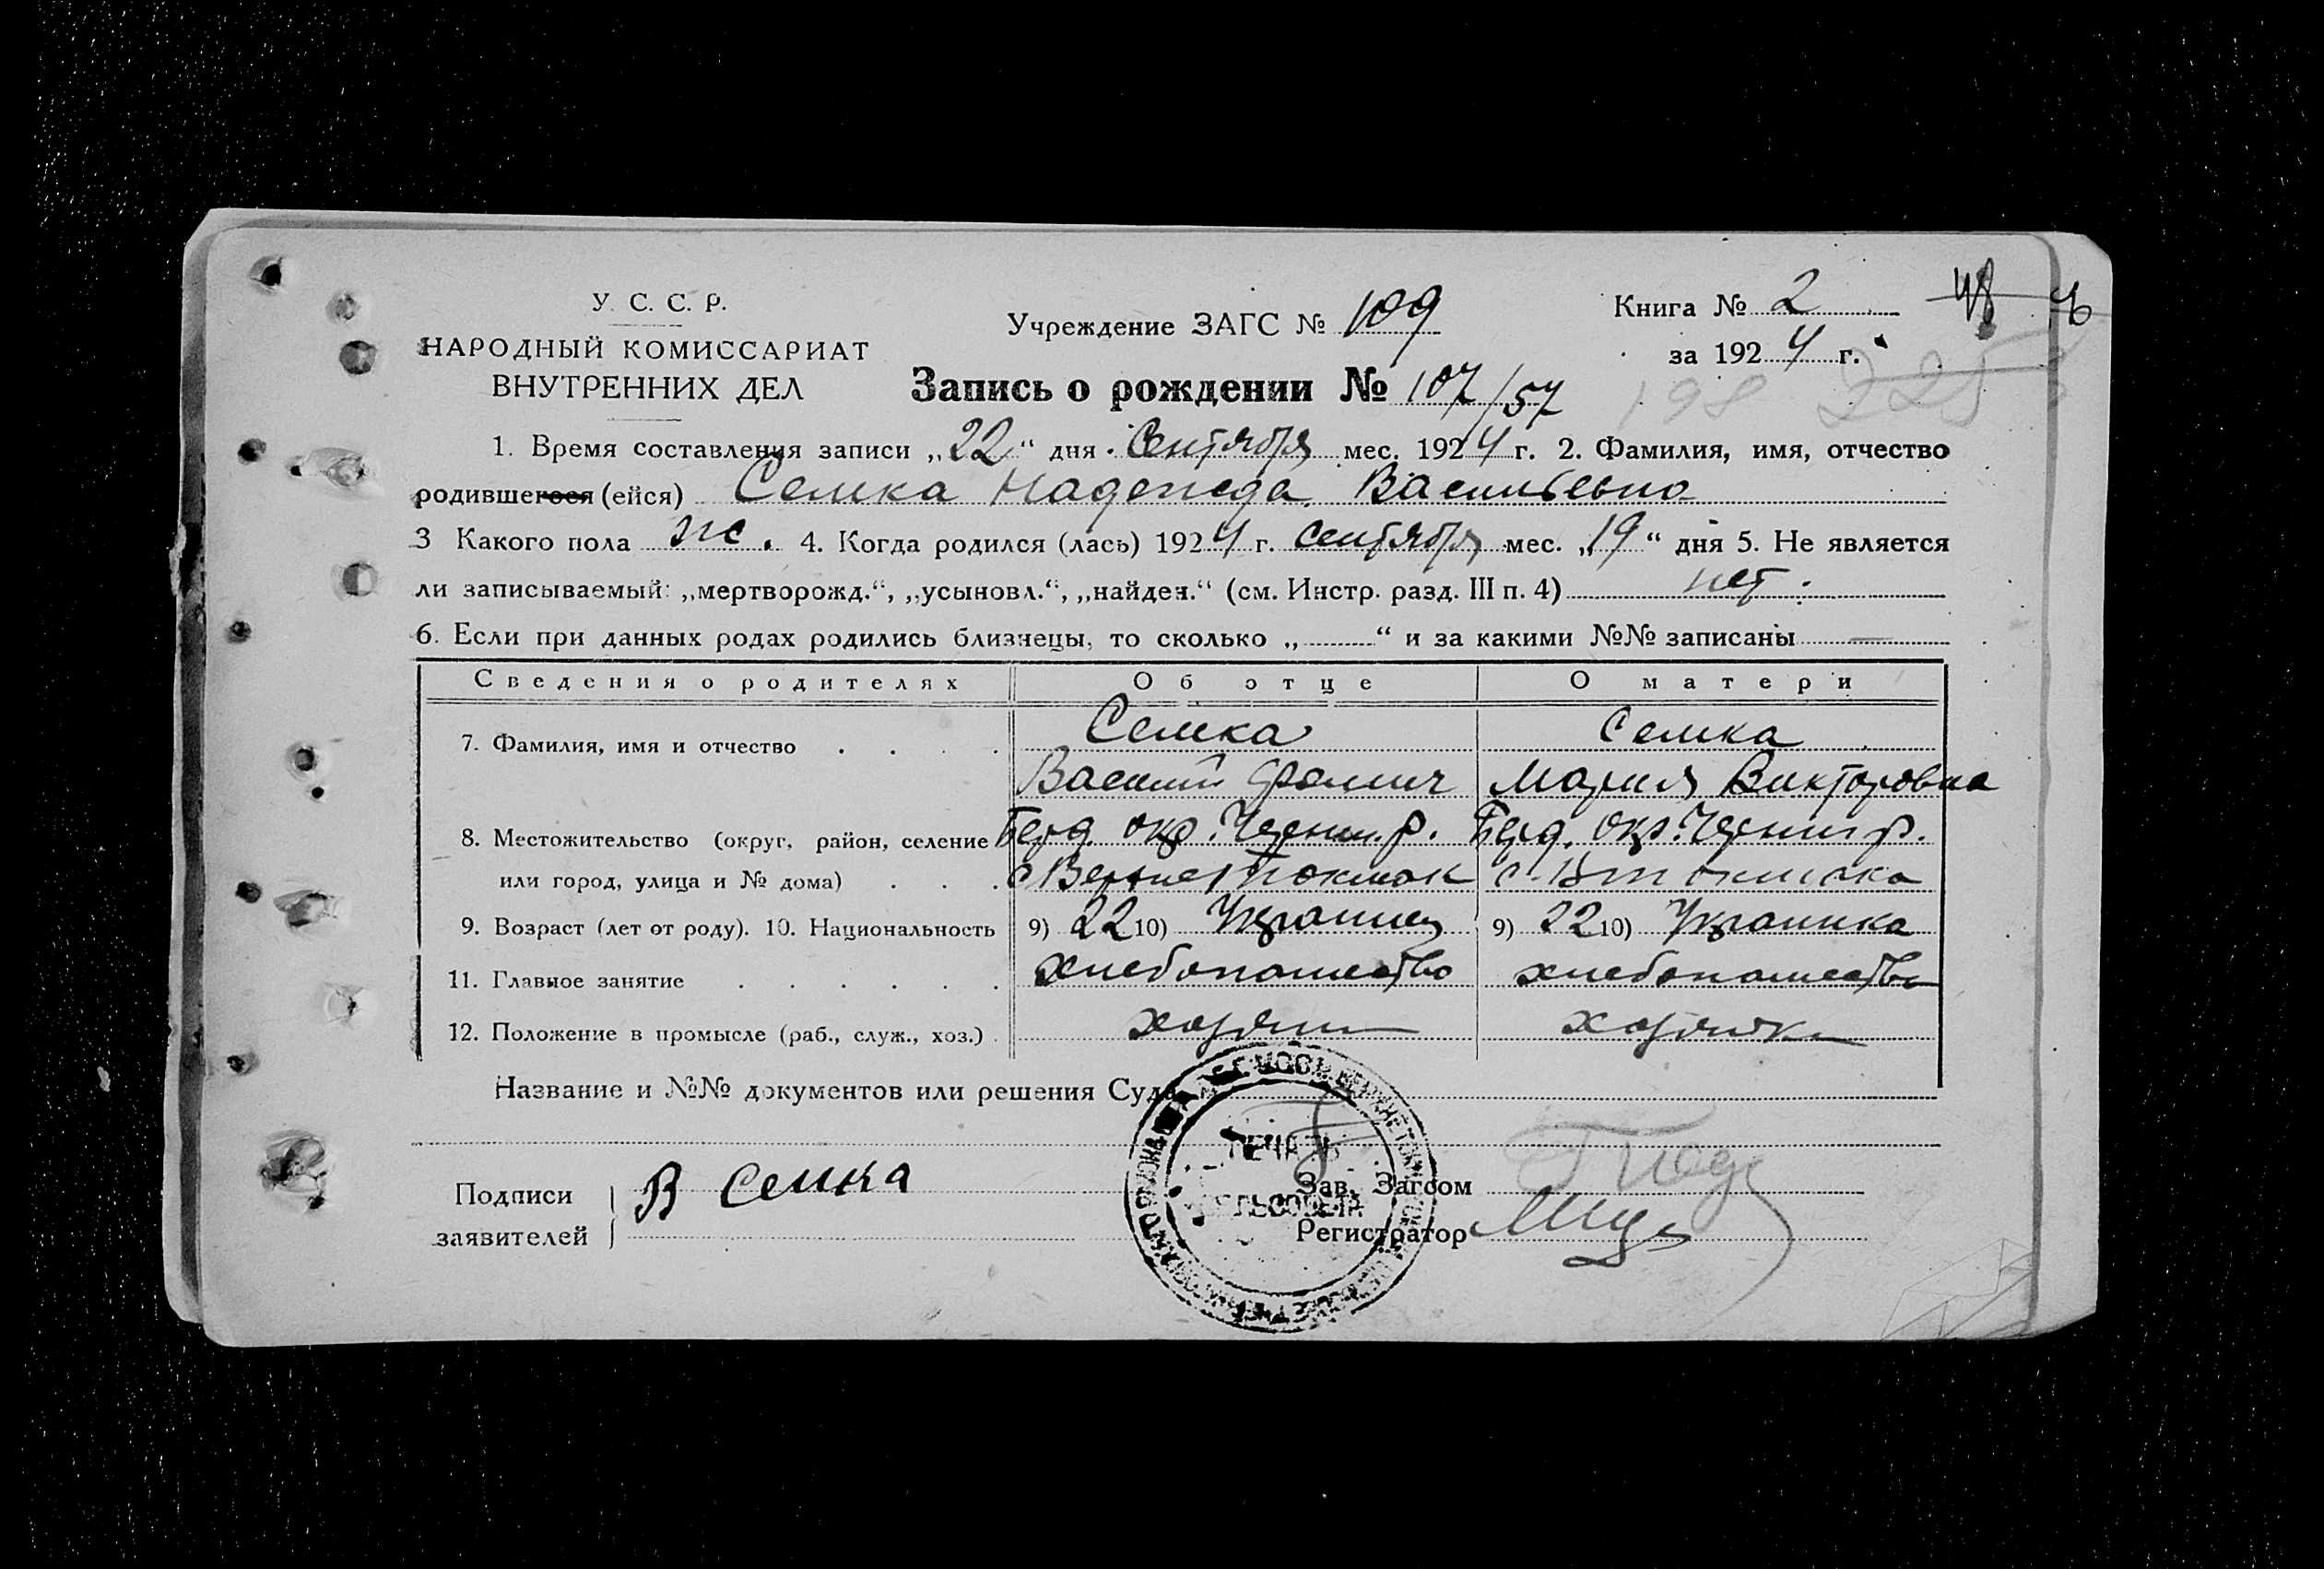 У. С. С. Р.
НАРОДНЫЙ КОМИССАРИАТ
ВНУТРЕННИХ ДЕЛ
Учреждение ЗАГС № 109
Книга № 2
за 1924 г.
48
198 225
Запись о рождении № 107/57
1. Время составления записи „22“ дня Сентября мес. 1924 г. 2. Фамилия, имя, отчество
родившегося (ейся) Семка Надежда Васильевна
3 Какого пола ж. 4. Когда родился (лась) 1924 г. сентября мес. „19“ дня 5. Не является
ли записываемый: „мертворожд.“, „усыновл.“, „найден.“ (см. Инстр. разд. III п. 4) нет.
6. Если при данных родах родились близнецы, то сколько „ “ и за какими №№ записаны —
Сведения о родителях Об отце О матери
7. Фамилия, имя и отчество Семка Семка
Василий Мария Викторовна
8. Местожительство (округ, район, селение Берд. окр. Черниг. р. Берд. окр. Черниг р.
или город, улица и № дома) с Верхне Токмак с. Вт Токмака
9. Возраст (лет от роду). 10. Национальность 9) 22 10) Украинец 9) 22 10) Украинка
11. Главное занятие хлебопашество хлебопашество
12. Положение в промысле (раб., служ., хоз.) хозяин хозяйка
Название и №№ документов или решения Суда
ПЕЧАТЬ
СЕЛЬСОВЕТА
Подписи
заявителей
В Семка
Зав. Загсом
Регистратор